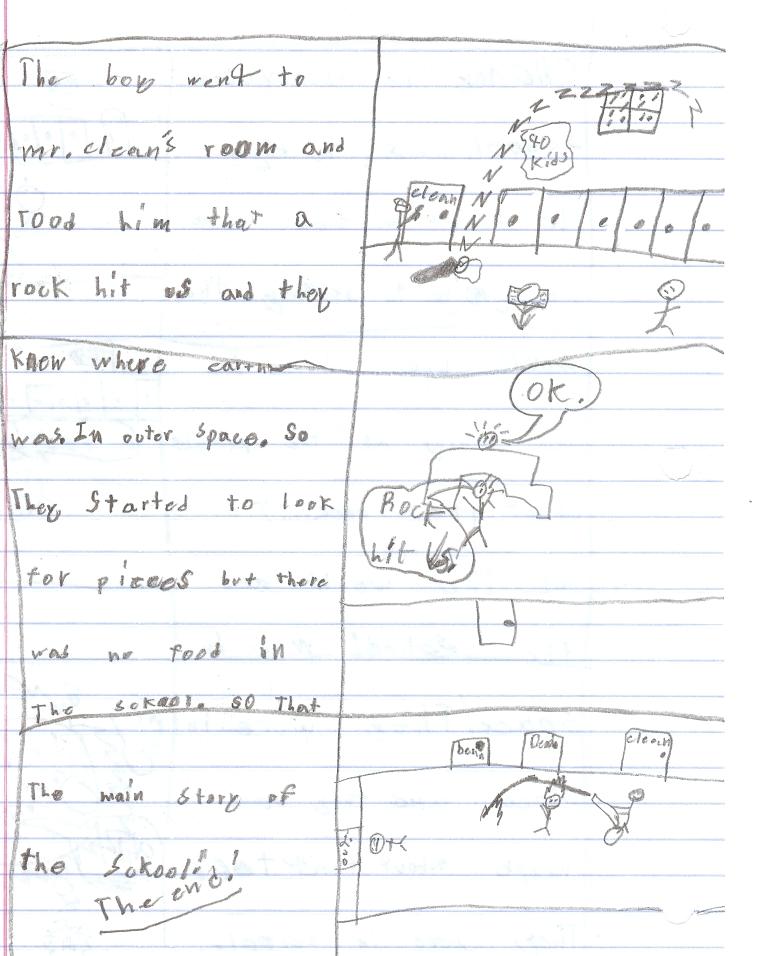 The boy went to
mr.clean's room and
rood him that a
rock hit us and they
know where earth
was. In outer space. So
They Started to look
for pizees but there
was no food in
The sckool. so That
The main story of
the sckool"!
The end!
40
Kids
clean
OK.
Rock
hit Us.
ben
Dean
clean